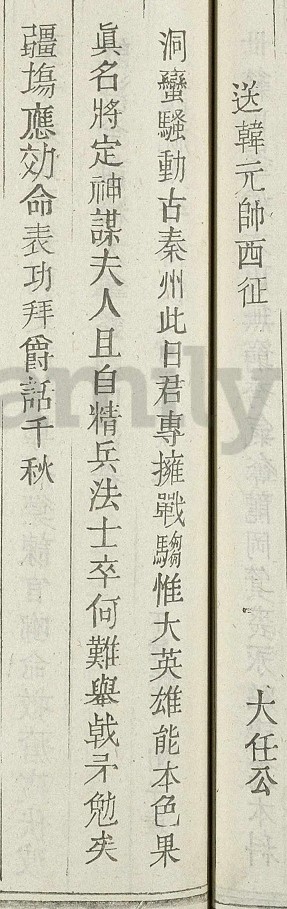 送韓元帥西征
大任公
洞蠻騷動古秦州此日君專擁戰騶惟大英雄能本色果
眞名將定神謀夫人且自精兵法士卒何難舉戟矛勉矣
疆塲應効命表功拜爵話千秋
amily